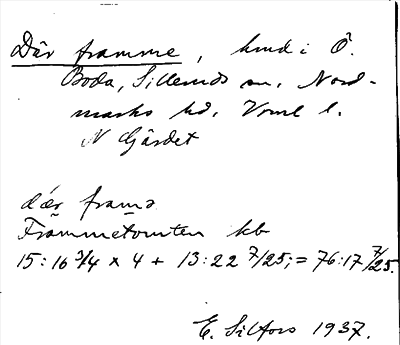 Där framme, hmd i Ö.
Boda, Sillerud sn, Nord-
marks hd, Vrml l.
N Gärdet
där framə
Frammetomten kb
15:16 3/4 x 4 + 13:22 7/25; = 76:17 7/25.
E. Silfors 1937.